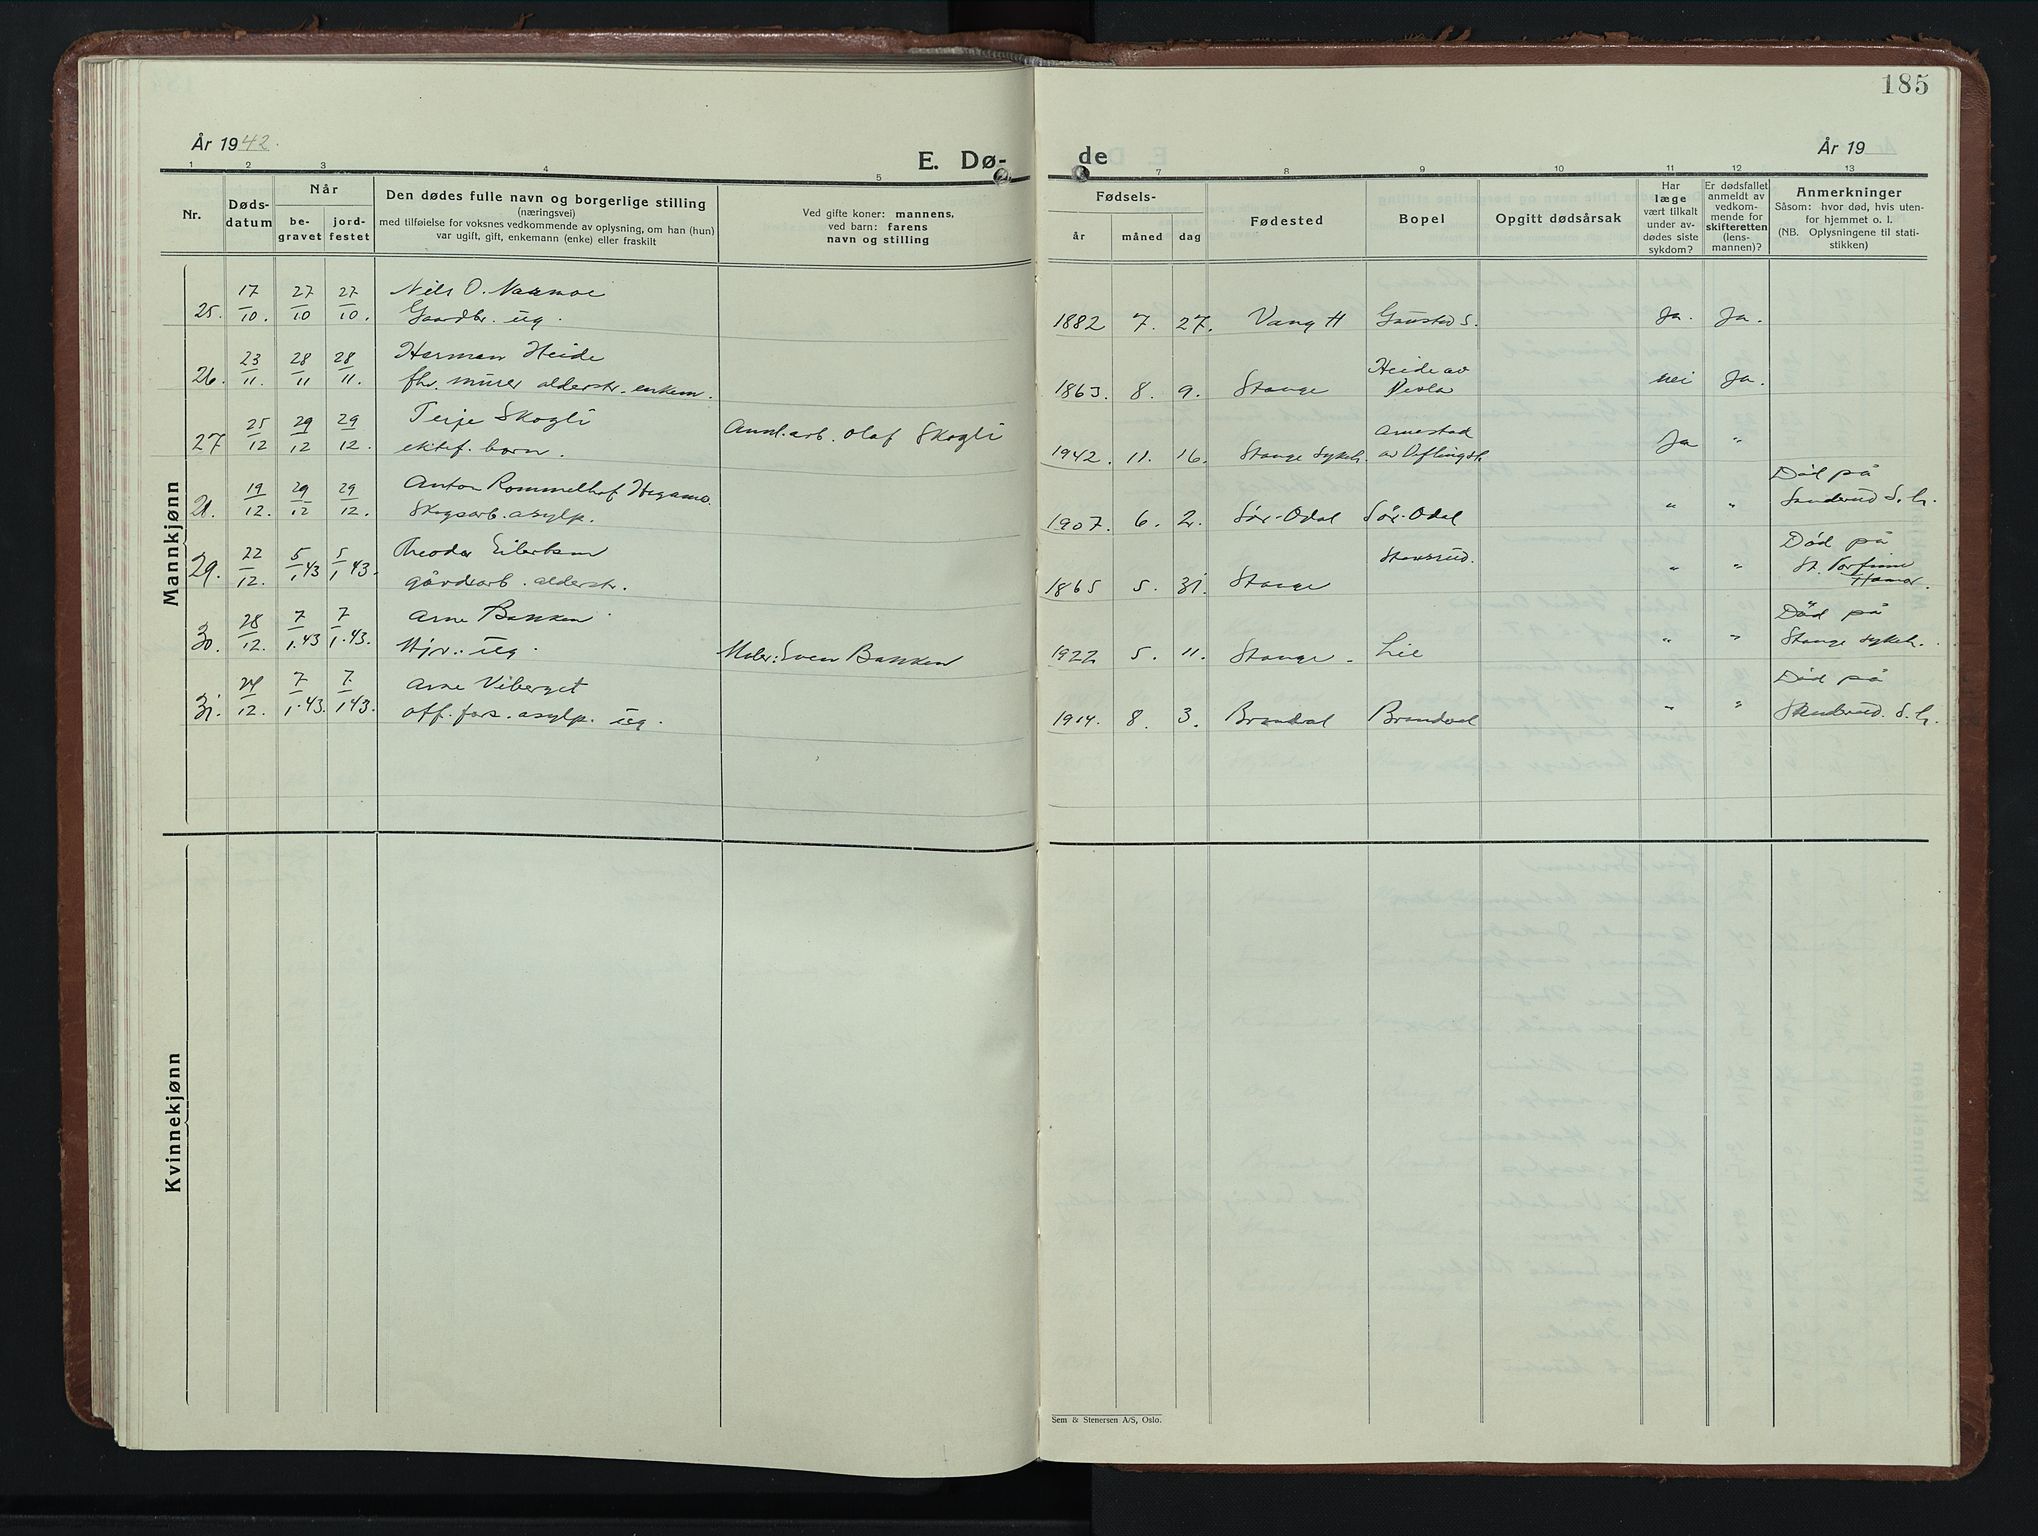 185
År 1942.
E. Dø-
de
År 19
1 2 3 4 5
7 8 9 10 11 12 13
Nr.
Døds-
datum
Når
be-
gravet
jord-
festet
Den dødes fulle navn og borgerlige stilling
(næringsvei)
med tilføielse for voksnes vedkommende av oplysning, om han (hun)
var ugift, gift, enkemann (enke) eller fraskilt
Ved gifte koner: mannens,
ved barn: farens
navn og stilling
Fødsels-
år måned dag
Fødested
Bopel
Opgitt dødsårsak
Har
læge
vært tilkalt
under av-
dødes siste
sykdom?
Er dødsfallet
anmeldt av
vedkom-
mende for
skifteretten
(lens-
mannen)?
Anmerkninger
Såsom: hvor død, hvis uten-
for hjemmet o. l.
(NB. Oplysningene til stati-
stikken)
Mannkjønn
25. 17/10. 27/10 27/10. Nils O.
Gaardbr. ug.
1882 7. 27. Vang H Gaustad S. Ja. Ja.
26. 23/11. 28/11 28/11. Herman Heide
fhv. murer alderstr. enkem.
1863. 8. 9. Stange Heide av
nei Ja.
27 25/12 29/12 29/12. Terje Skogli
ektef. barn.
Annl.arb. Olaf Skogli
1942. 11. 16. Stange Sykeh. Arnestad
Ja "
28. 19/12. 29/12 29/12. Anton Rommelhof
Skogsarb. asylp.
1907. 6. 2. Sør-Odal Sør-Odal " " Død på
Sanderud S.h.
29. 22/12. 5/1 43 5/1 43. Theodor Eilertsen
gårdsarb. alderstr.
1865 5. 31. Stange " " Død på
St. Torfinn
Hamar.
30. 28/12. 7/1. 43 7/1. 43. Arne Bakken
ug.
Maler: Sven Bakken
1922 5. 11. Stange. Lie " " Død på
Stange sykeh.
31. 24/12. 7/1. 43. 7/1 43. Arne Viberget
off. fors. asylp. ug.
1914. 8. 3. Brandval Brandval " " Død på
Sanderud. S.h.
Kvinnekjønn
Sem & Stenersen A/S, Oslo.